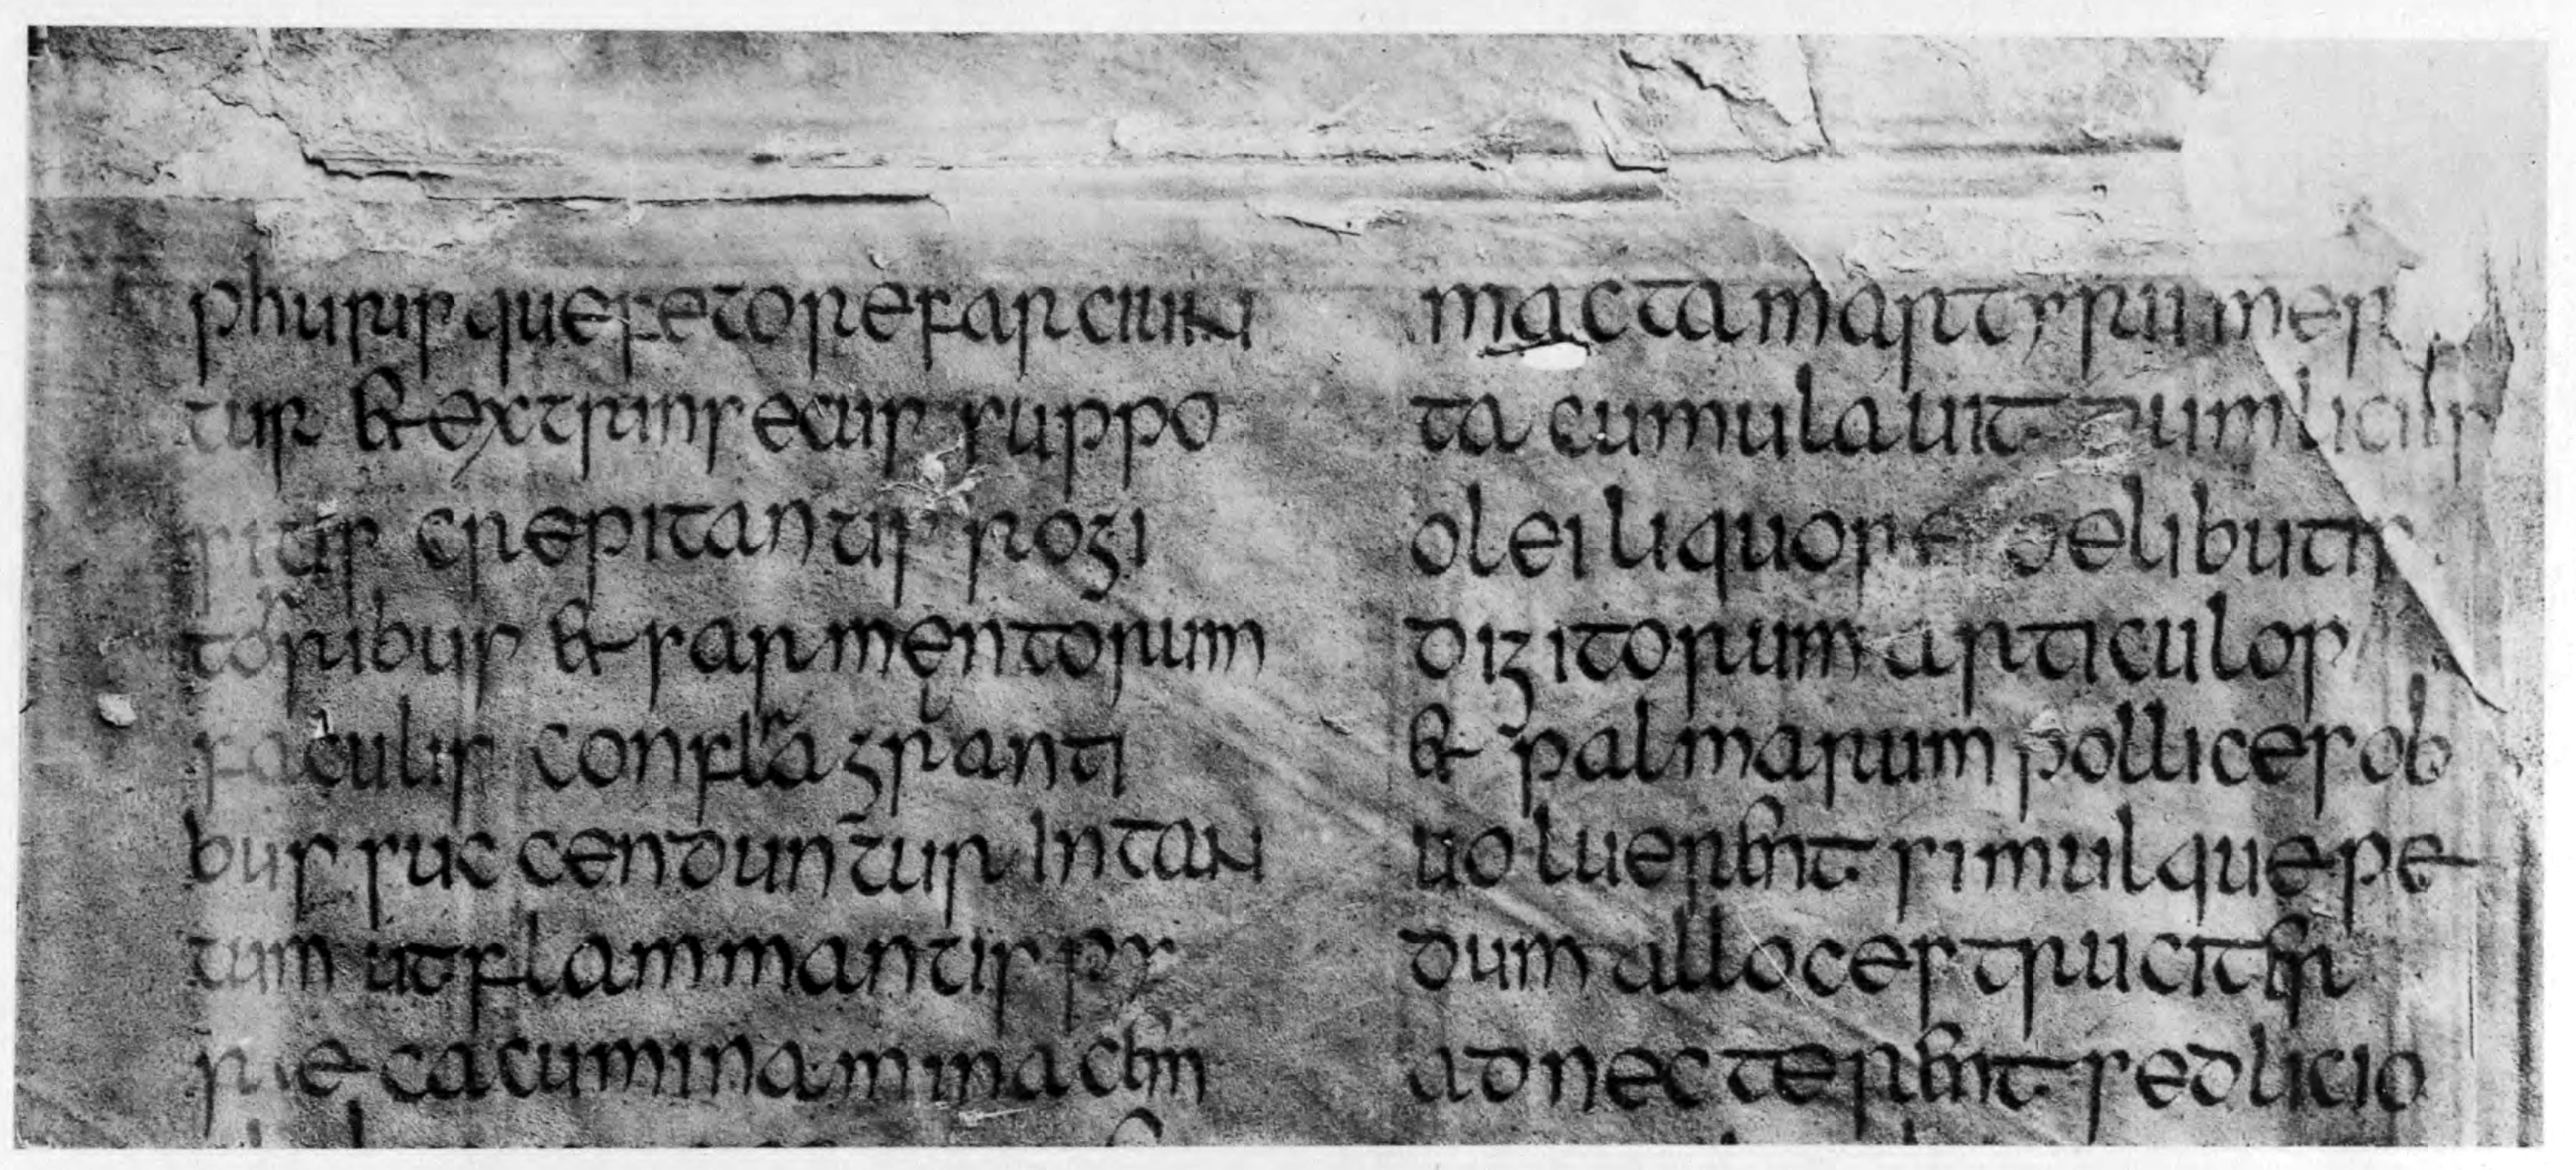 phurisque fetore farciun
tur & extrinsecus suppo
sitis crepitantis rogi
torribus & sarmentorum
faculis conflagranti
bus succenduntur In tan
tum ut flammantis py
re cacumina minacen
macta martyrii mer
ta cumulauit dum liciis
olei liquore delibutis
digitorum articulos
& palmarum pollices ob
uoluerent simulque pe
dum alloces truciter
adnecterent sed licio